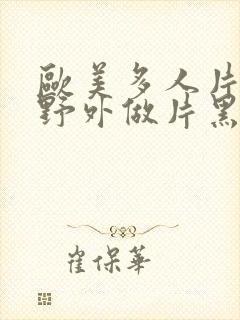 歐美多人片
野外做片黑
崔保華